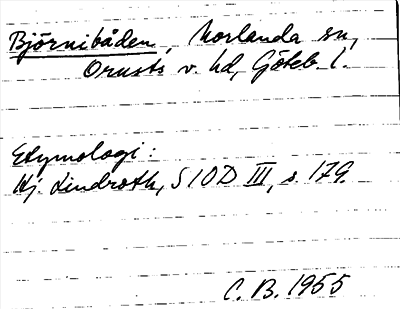 Björnibåden, Morlanda sn,
Orusts v. hd, Göteb. l.
Etymologi:
Hj. Lindroth, SIOD III, s. 179.
C. B. 1955